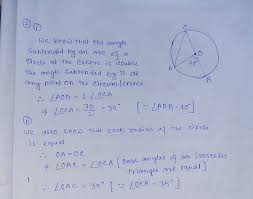 ② ①
We know that the angle
subtended by an arc of a
circle at the centre is double
the angle subtended by it at
any point on the circumference
∴ ∠AOB = 2 ∠OCA
⇒ ∠OCA = 70/2 = 35° [∵ ∠AOB = 70°]
C
O
70°
A
B
②
We also know that each radius of the circle
is equal
∴ OA = OC
⇒ ∠OAC = ∠OCA [Base angles of an isosceles
triangle are equal]
∴ ∠OAC = 35° [∵ ∠OCA = 35°]